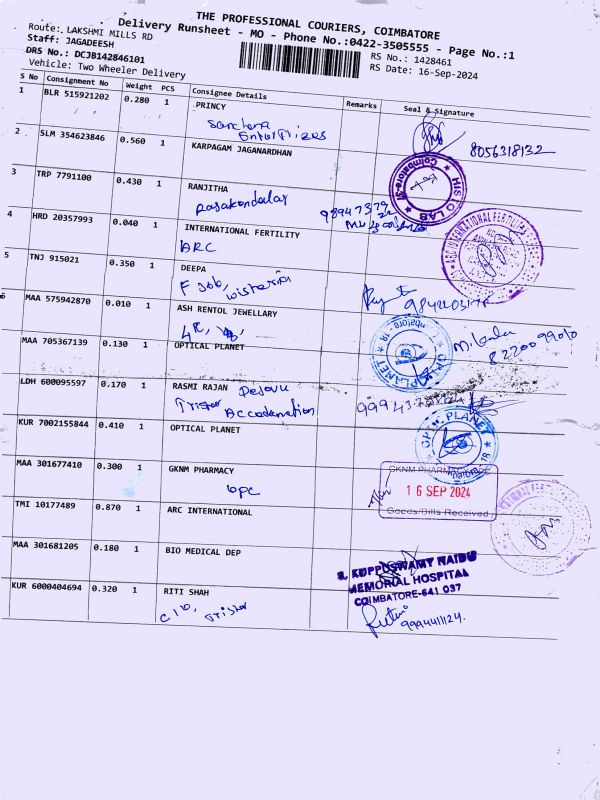 THE PROFESSIONAL COURIERS, COIMBATORE
Delivery Runsheet - MO - Phone No.:0422-3505555 - Page No.:1
Route: LAKSHMI MILLS RD
Staff: JAGADEESH
DRS No.: DCJB142846101
Vehicle: Two Wheeler Delivery
RS No.: 1428461
RS Date: 16-Sep-2024
S No Consignment No Weight PCS Consignee Details Remarks Seal & Signature
1 BLR 515921202 0.280 1 PRINCY
Enterprizes
8056318132
2 SLM 354623846 0.560 1 KARPAGAM JAGANARDHAN
HISTO LAB Coimbatore-37
3 TRP 7791100 0.430 1 RANJITHA
4 HRD 20357993 0.040 1 INTERNATIONAL FERTILITY
ARC
INTERNATIONAL FERTILITY
5 TNJ 915021 0.350 1 DEEPA
F Job, wisteria
6 MAA 575942870 0.010 1 ASH RENTOL JEWELLARY
MAA 705367139 0.130 1 OPTICAL PLANET
8220099010
LDH 600095597 0.170 1 RASMI RAJAN
Tristar Accodamation
KUR 7002155844 0.410 1 OPTICAL PLANET
PLANET
MAA 301677410 0.300 1 GKNM PHARMACY
opc
GKNM PHARMACY
16 SEP 2024
Goods/Bills Received
TMI 10177489 0.870 1 ARC INTERNATIONAL
MAA 301681205 0.180 1 BIO MEDICAL DEP
KUPPUSWAMY NAIDU
MEMORIAL HOSPITAL
COIMBATORE-641 037
KUR 6000404694 0.320 1 RITI SHAH
C/O, Tristar
9994411124.